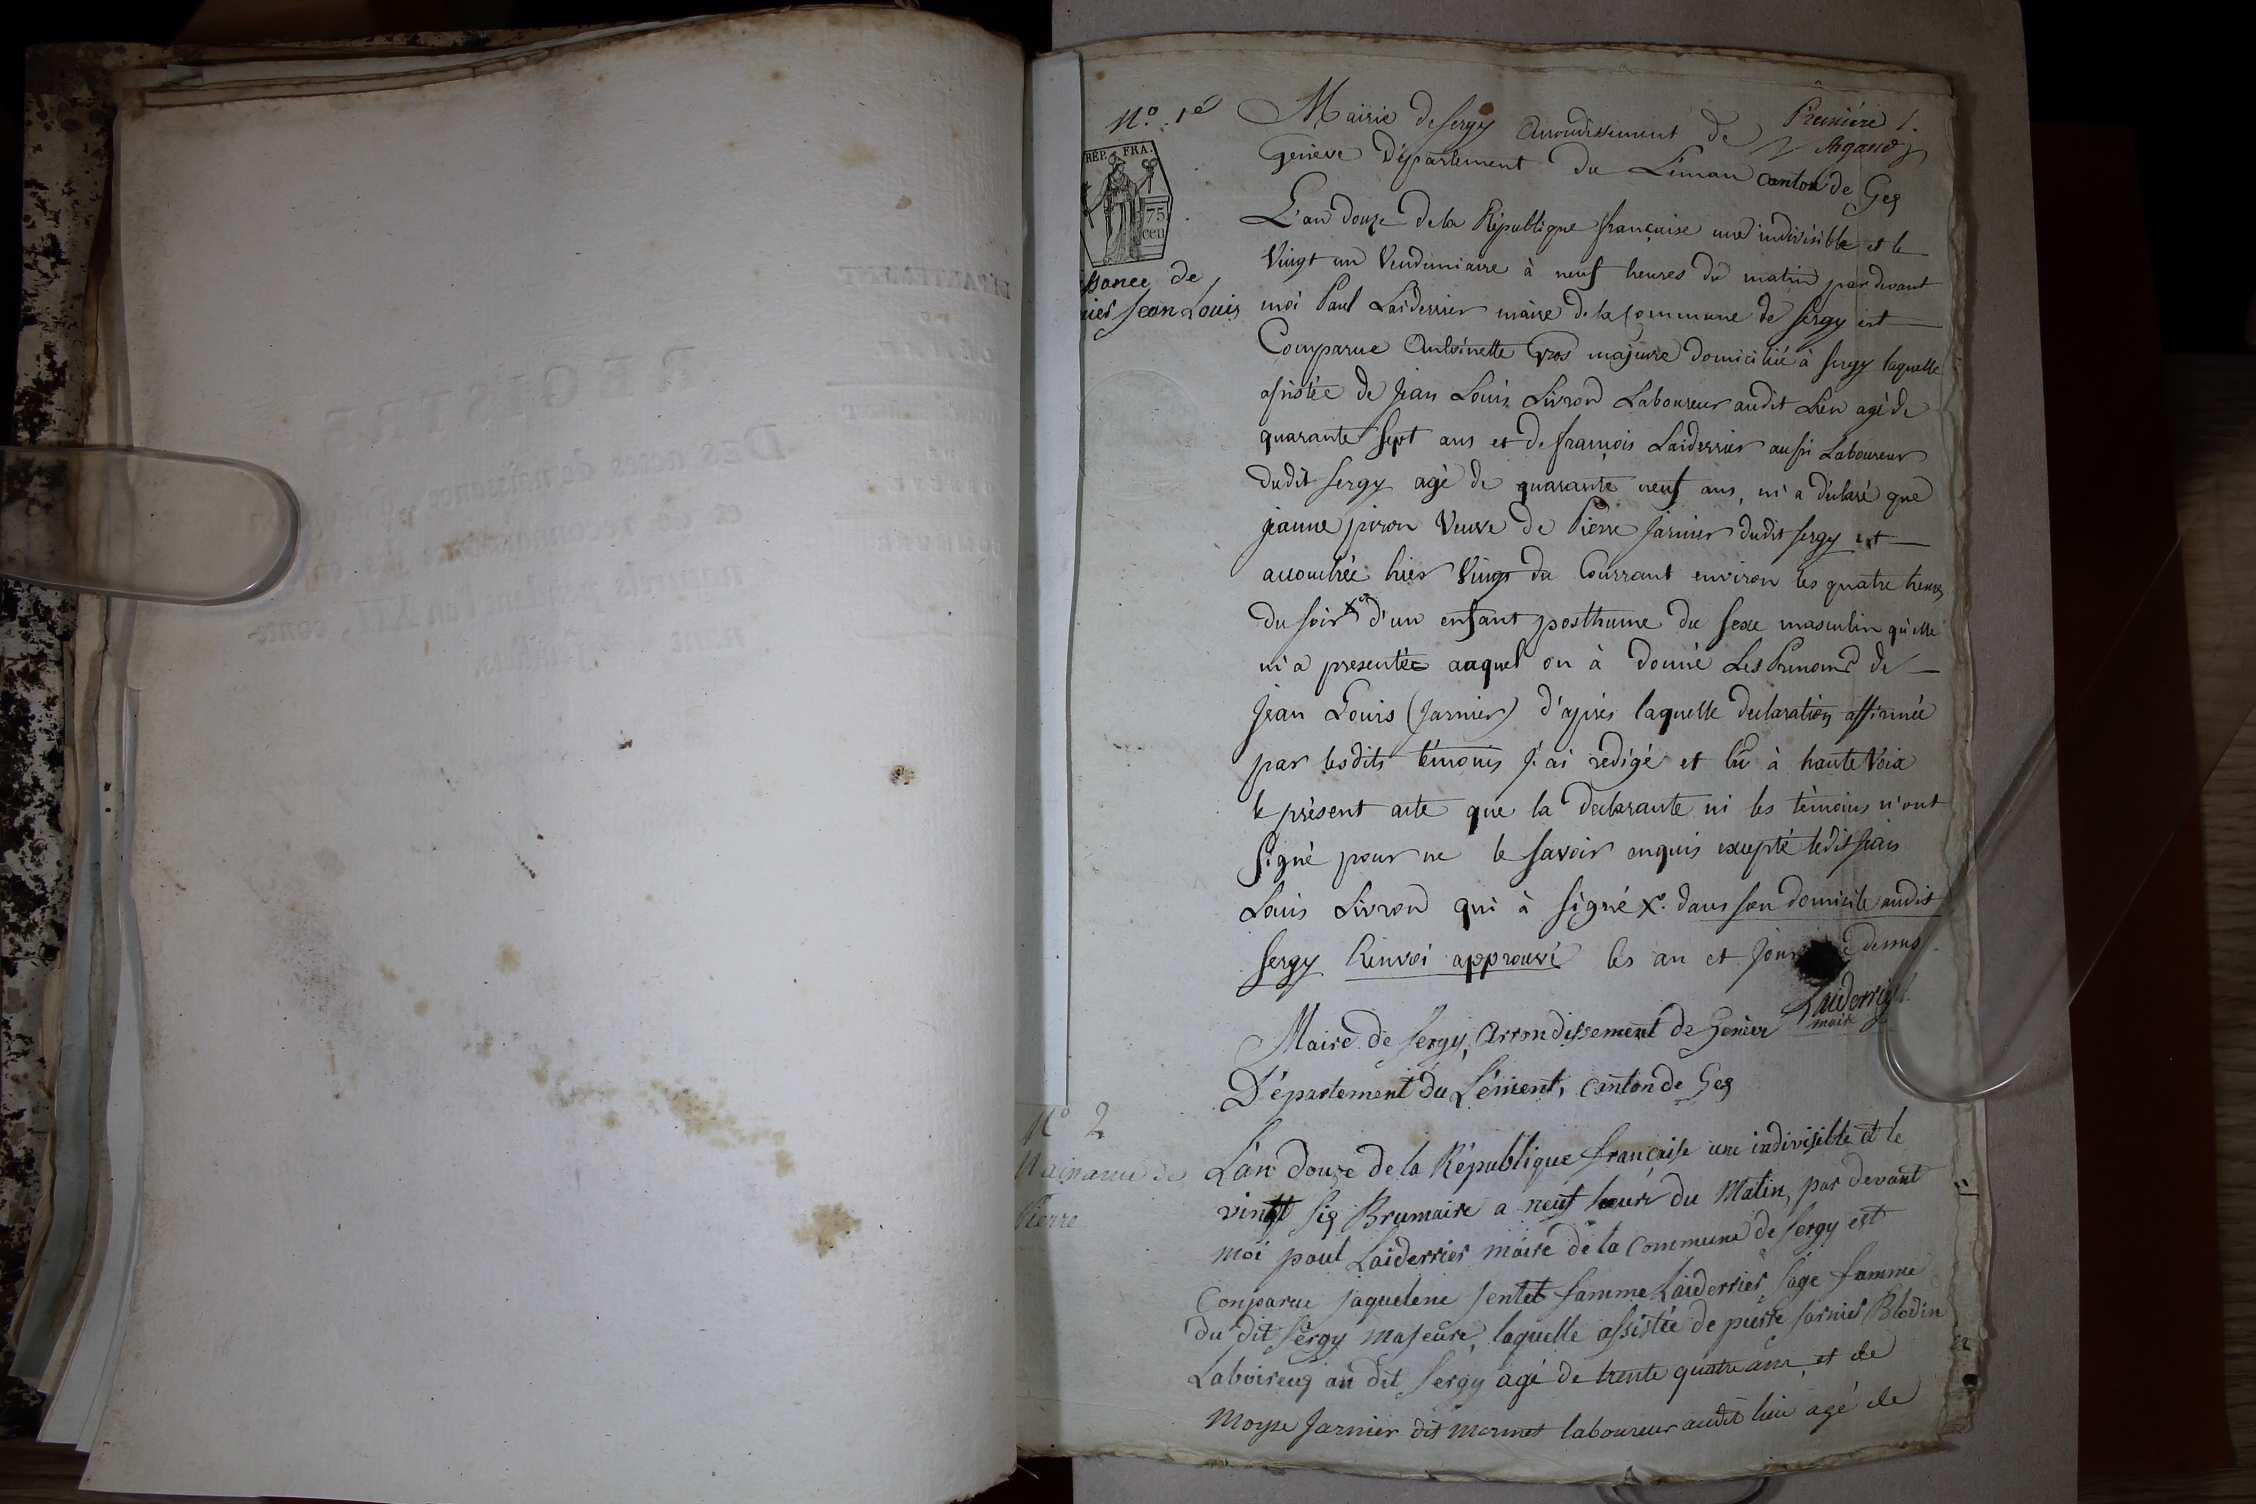 Première 1.
Argand
N.º 1.º
RÉP. FRA.
75
cen
ssance de
nier Jean Louis
Mairie de Sergy Arrondissement de
Genève Département du Léman Canton de Gex
L'an douze de la République française une indivisible et le
vingt un Vendemiaire à neuf heures du matin par devant
moi Paul Laiderrier maire de la Commune de Sergy est
Comparue Antoinette Gros majeure domiciliée à Sergy laquelle
assistée de Jean Louis Livron Laboureur audit Lieu agé de
quarante Sept ans et de françois Laiderrier aussi Laboureur
dudit Sergy agé de quarante neuf ans, m'a déclaré que
jeanne piron Veuve de Pierre Jarnier dudit Sergy est
accouchée hier Vingt du Courrant environ les quatre heures
du soir X.º d'un enfant posthume du sexe masculin qu'elle
m'a presentée auquel on à donné Les Prenoms de
Jean Louis (Jarnier) d'après laquelle declaration affirmée
par lesdits témoins j'ai redigé et lu à haute Voix
le présent acte que la declarante ni les témoins n'ont
signé pour ne le savoir enquis excepté ledit Jean
Louis Livron qui à signé X.º dans son domicile audit
Sergy Renvoi approuvé les an et jour dessus
Laiderrier
maire
Maire de Sergy, Arrondissement de Genève
Département du Lément, Canton de Gex
N.º 2
Naissance de
Pierre
L'an douze de la République française une indivisible et le
vingt six Brumaire a neuf heure du Matin, par devant
moi paul Laiderrier maire de la Commune de Sergy est
Conparue Jaquelene Jentet famme Laiderrier sage famme
du dit Sergy majeure, laquelle assistée de pierre Jarnier Blodin
Laboireux au dit Sergy agé de trente quatre ans, et de
Moyse Jarnier dit Mormet laboureur audit lieu agé de